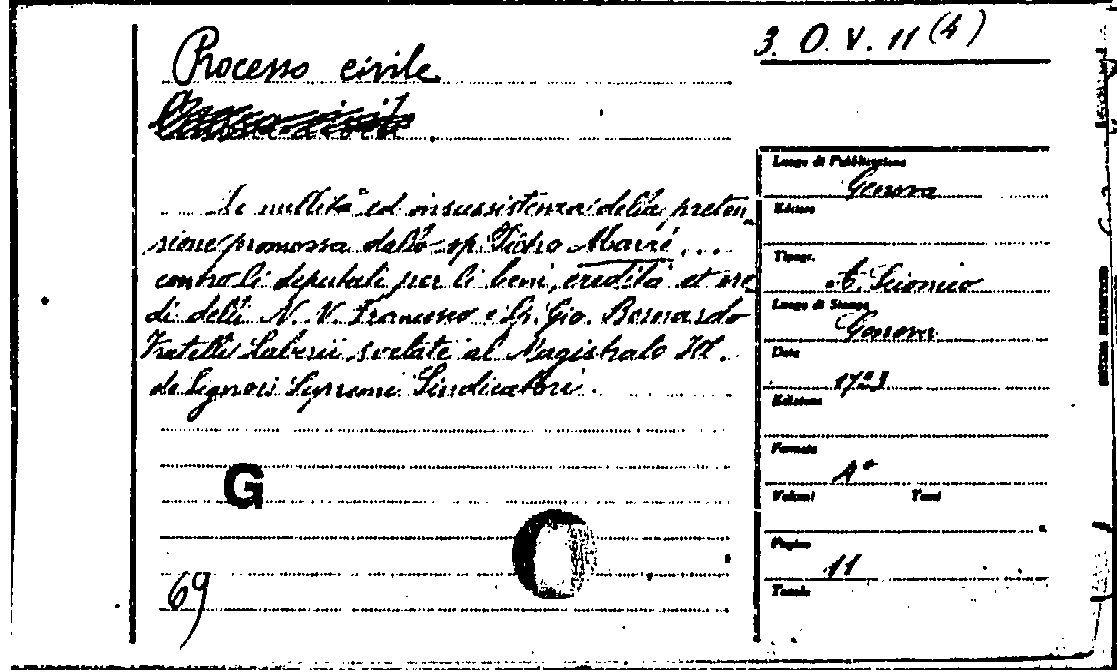 Processo civile
3. O. V. 11 (4)
Le nullità ed insussistenza della preten
sione promossa dallo sp. Pietro Marrè...
contro li deputati per li beni, eredità et ere
di delli N. V. Francesco e Gio. Bernardo
Fratelli svelate al Magistrato Ill.
de Signori Supremi Sindicatori.
G
69
Luogo di Pubblicazione
Genova
Editore
Tipogr.
A. Scionico
Luogo di Stampa
Genova
Data
1723
Edizione
Formato
4°
Volumi Tomi
Pagine
11
Tavole